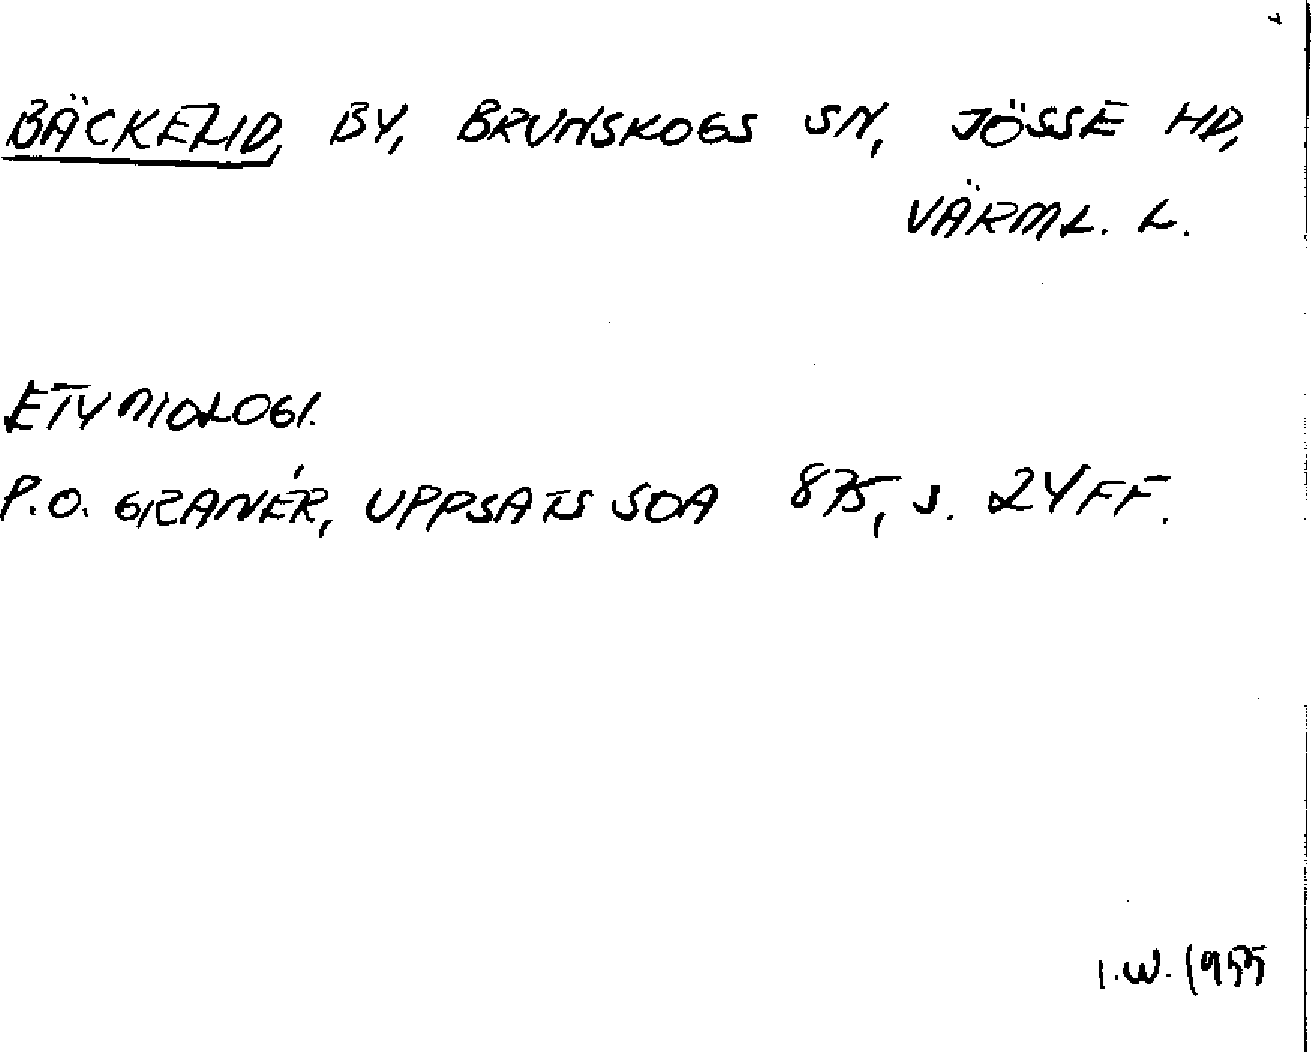 BÄCKELID, BY, BRUNSKOGS SN, JÖSSE HD,
VÄRML. L.
ETYMOLOGI.
P.O. GRANÉR, UPPSATS SOA 875, S. 24 FF.
I.W. 1955